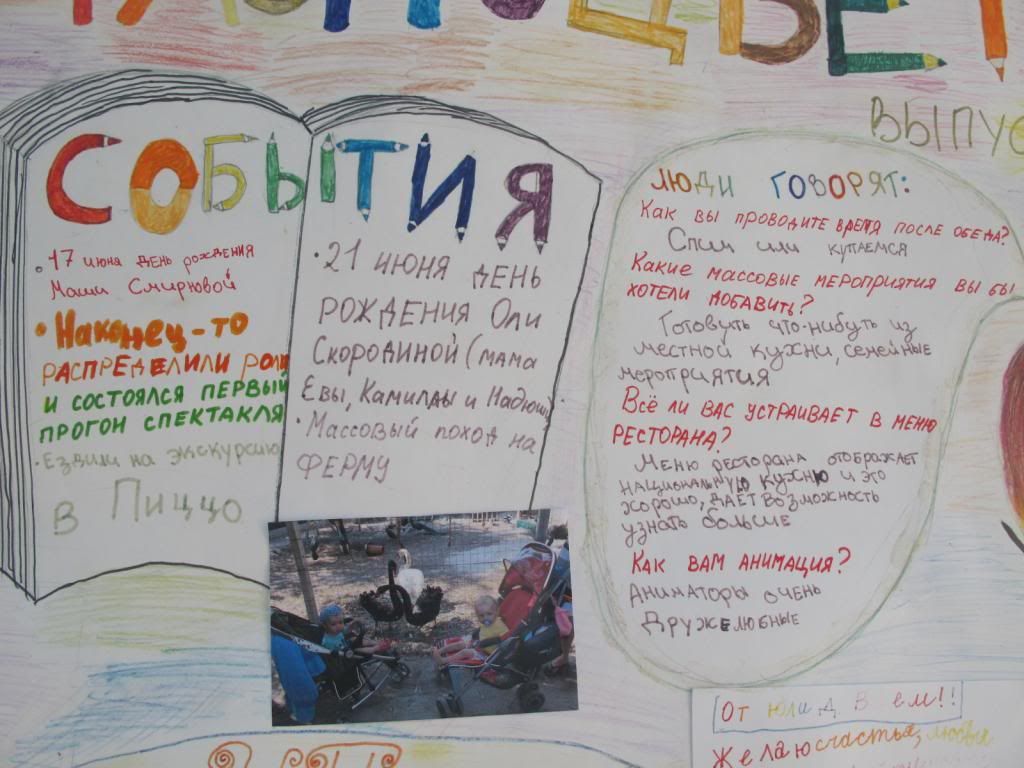 ВЫПУС
СОБЫТИЯ
• 17 июня день рождения
Маши Смирновой
• Наконец-то
РАСПРЕДЕЛИЛИ РОЛИ
И СОСТОЯЛСЯ ПЕРВЫЙ
ПРОГОН СПЕКТАКЛЯ
• Ездили на экскурсию
в Пиццо
• 21 июня день
рождения Оли
Скородиной (мама
Евы, Камиллы и Надюши)
• Массовый поход на
ФЕРМУ
ЛЮДИ ГОВОРЯТ:
Как вы проводите время после обеда?
Спим или купаемся
Какие массовые мероприятия вы бы
хотели добавить?
Готовуть что-нибуть из
местной кухни, семейные
мероприятия
Всё ли вас устраивает в меню
РЕСТОРАНА?
Меню ресторана отображает
национальную кухню и это
хорошо, даёт возможность
узнать больше
Как вам анимация?
Аниматоры очень
Дружелюбные
От юли д в ем!!
Желаю счастья, любви